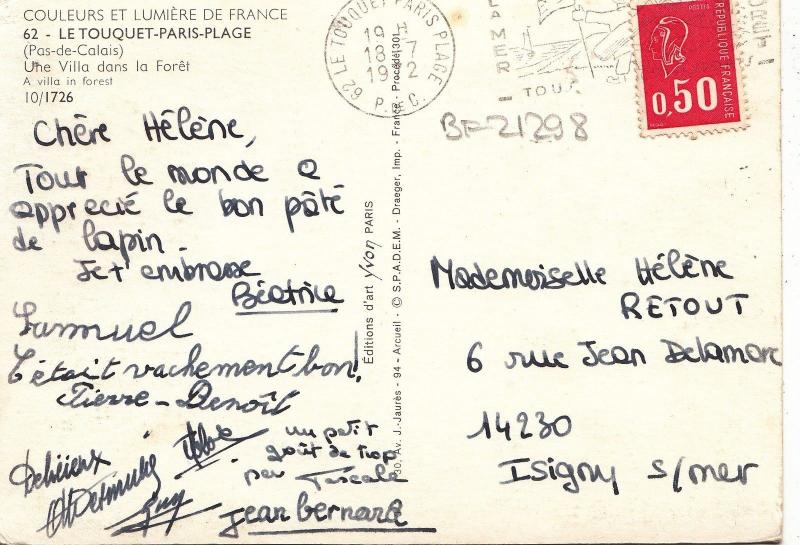 COULEURS ET LUMIÈRE DE FRANCE
62 - LE TOUQUET-PARIS-PLAGE
(Pas-de-Calais)
Une Villa dans la Forêt
A villa in forest
10/1726
Chère Hélène,
Tout le monde a
apprecié le bon pâté
de lapin.
Je t'embrasse
Béatrice
Samuel
C'était vachement bon!
Pierre-Benoît
Delicieux
Guy
un petit
goût de trop
peu Pascale
Jean bernard
62 LE TOUQUET PARIS PLAGE
19 H
18-7
19 2
P.
C.
LA MER
- TOU
BF-21298
POSTES
RÉPUBLIQUE FRANÇAISE
0,50
Éditions d'art yvon PARIS
30, Av. J.-Jaurès - 94 - Arcueil - © S.P.A.D.E.M. - Draeger, Imp. - France - Procédé 301
Mademoiselle Hélène
RETOUT
6 rue Jean Delamare
14230
Isigny s/mer